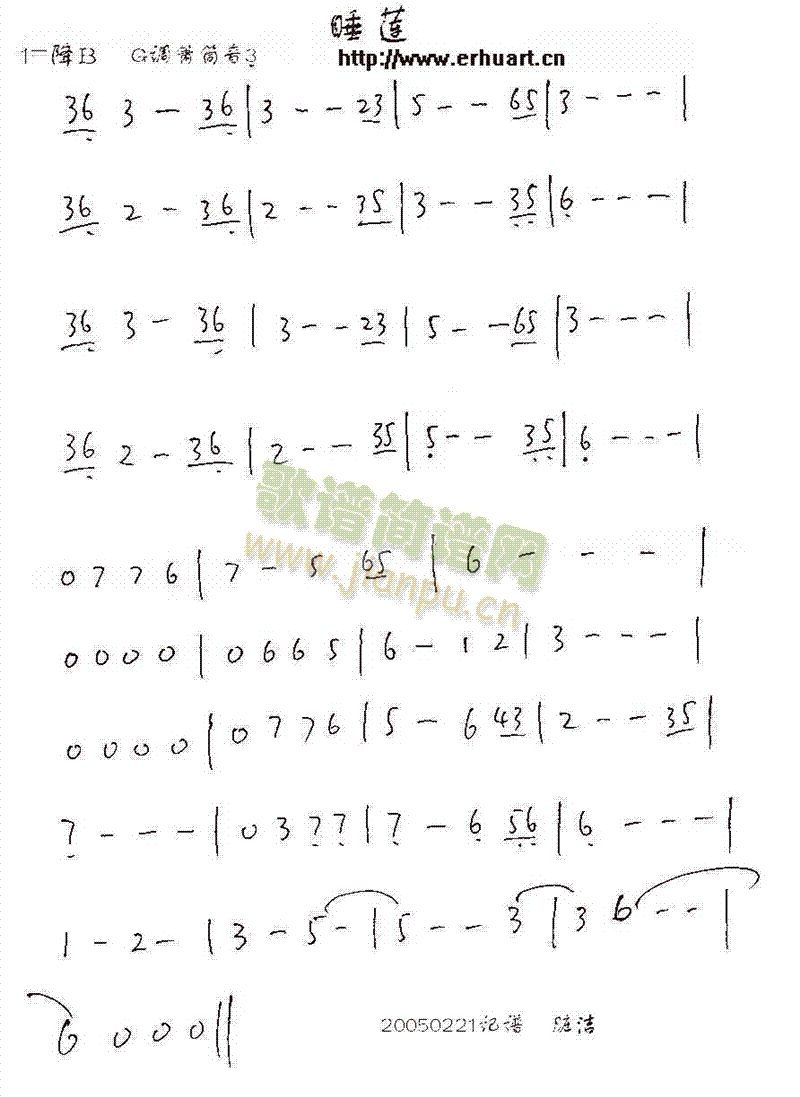 睡莲
1=降B G调箫筒音3
http://www.erhuart.cn
36 3 - 36 | 3 - - 23 | 5 - - 65 | 3 - - - |
36 2 - 36 | 2 - - 35 | 3 - - 35 | 6 - - - |
36 3 - 36 | 3 - - 23 | 5 - - 65 | 3 - - - |
36 2 - 36 | 2 - - 35 | 5 - - 35 | 6 - - - |
歌谱简谱网
www.jianpu.cn
0 7 7 6 | 7 - 5 65 | 6 - - - |
0 0 0 0 | 0 6 6 5 | 6 - 1 2 | 3 - - - |
0 0 0 0 | 0 7 7 6 | 5 - 6 43 | 2 - - 35 |
7 - - - | 0 3 7 7 | 7 - 6 56 | 6 - - - |
1 - 2 - | 3 - 5 - | 5 - - 3 | 3 6 - - |
6 0 0 0 ||
20050221记谱 洁